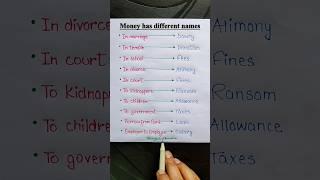 Money has different names
In marriage → Dowry
In temple → Donation
In school → Fees
In divorce → Alimony
In court → Fines
To Kidnapers → Ransom
To children → Allowance
To government → Taxes
Borrow from bank → Loan
Employer to Employee → Salary
In divorce
In court
To Kidnap
To childre
To gover
Alimony
Fines
Ransom
Allowance
Taxes